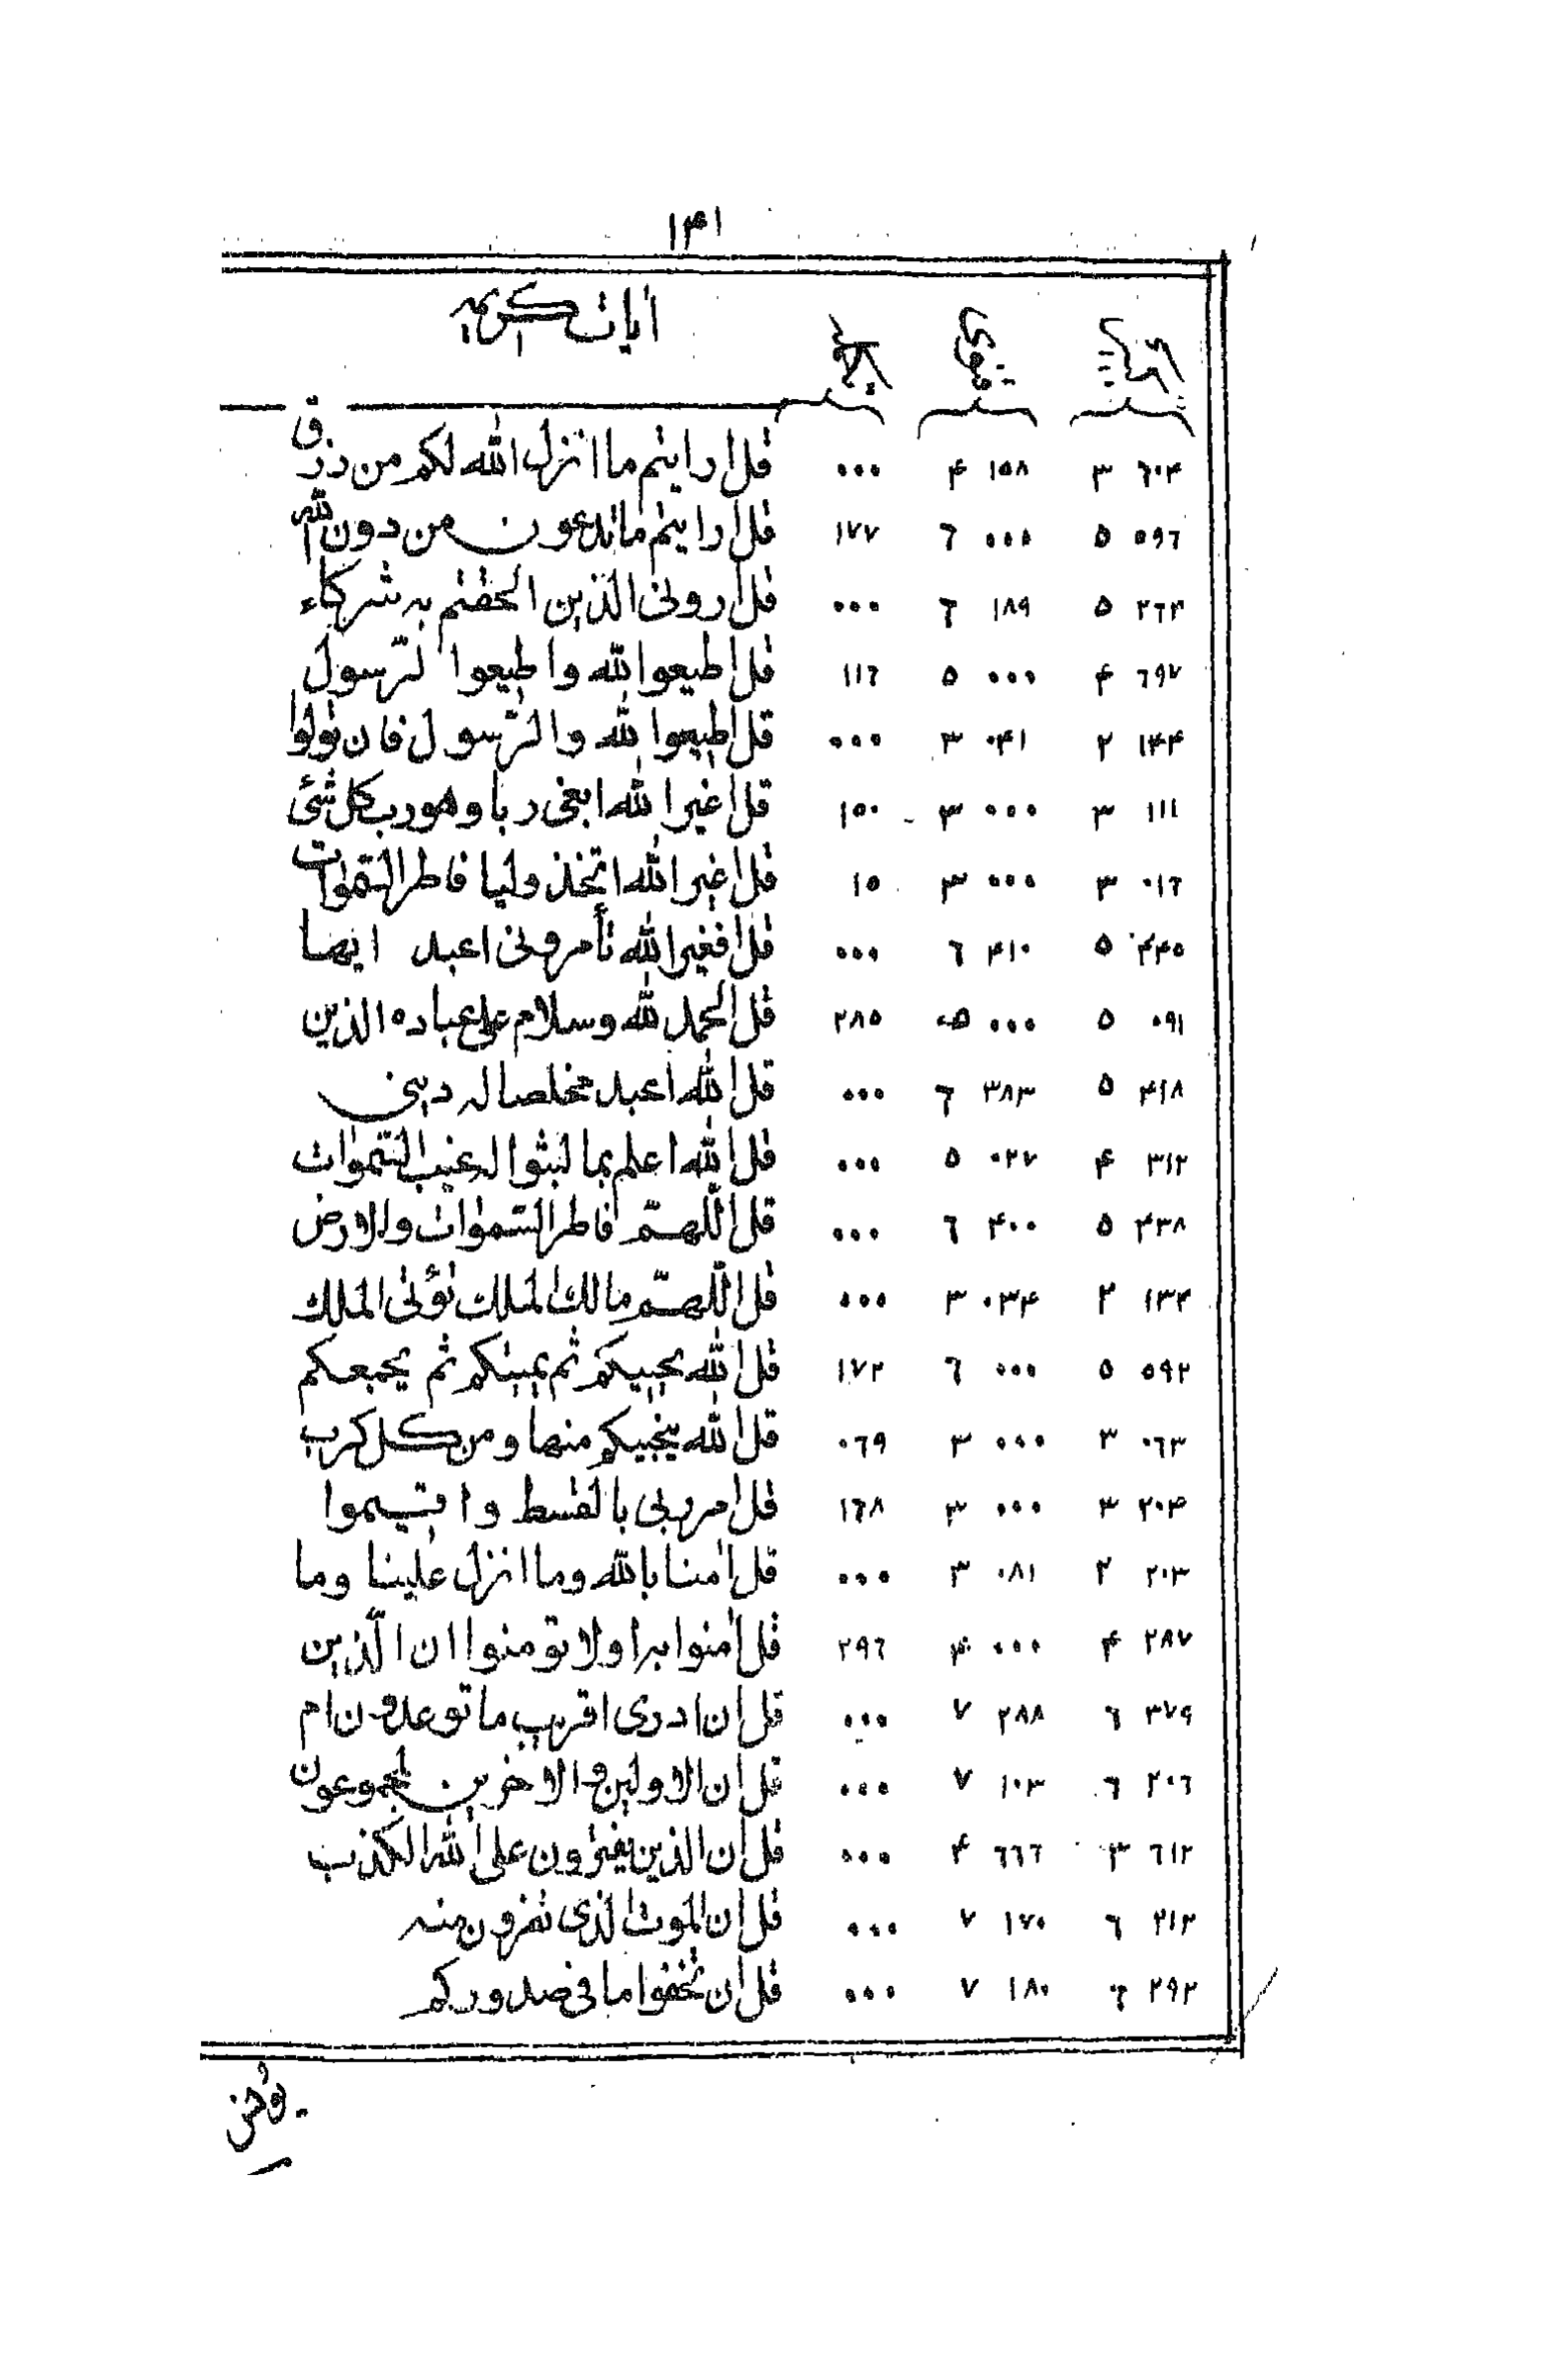 ١٣١
ايات كريمه
٦٠٤ ٣ ١٥٨ ۴ ٠٠٠ قل ارايتم ما انزل الله لكم من رزق
٥٩٦ ٥ ٠٠٠ ٦ ١٧٧ قل ارايتم ماتدعون من دون الله
٢٦٣ ٥ ١٨٩ ٦ ٠٠٠ قل ارونى الذين الحقتم به شركاء
٦٩٧ ۴ ٠٠٠ ٥ ١١٦ قل اطيعوا لله واطيعوا لرّسول
١۴۴ ٢ ٠۴١ ٣ ٠٠٠ قل اطيعوا لله والرّسول فان تولوا
١١١ ٣ ٠٠٠ ٣ ١٥٠ قل اغير الله ابغى ربا وهو رب كل شئ
٠١٦ ٣ ٠٠٠ ٣ ١٥ قل اغير الله اتخذ وليا فاطر السّمٰوات
۴۴٥ ٥ ۴١٠ ٦ ٠٠٠ قل افغير الله تأمرونى اعبد ايها
٠٩١ ٥ ٠٠٠ ٥ ٢٨٥ قل الحمد لله وسلام على عباده الذين
۴١٨ ٥ ٣٨٣ ٦ ٠٠٠ قل الله اعبد مخلصا له دينى
٣١٢ ۴ ٠٢٧ ٥ ٠٠٠ قل الله اعلم بما لبثوا له غيب السّمٰوات
۴٣٨ ٥ ۴٠٠ ٦ ٠٠٠ قل اللّهمّ فاطر السّمٰوات والارض
١٣٣ ٢ ٠٣۴ ٣ ٠٠٠ قل اللّهمّ مالك الملك تؤتى الملك
٥٩٢ ٥ ٠٠٠ ٦ ١٧٢ قل الله يحييكم ثم يميتكم ثم يجمعكم
٠٦٣ ٣ ٠٠٠ ٣ ٠٦٩ قل الله ينجيكم منها ومن كل كرب
٢٠۴ ٣ ٠٠٠ ٣ ١٦٨ قل امر ربى بالقسط واقيموا
٢٠٣ ٢ ٠٨١ ٣ ٠٠٠ قل اٰمنا بالله وما انزل علينا وما
٢٨٧ ۴ ٠٠٠ ۴ ٢٩٦ قل اٰمنوا به اولا تومنوا ان الّذين
٣٧٩ ٦ ٢٨٨ ٧ ٠٠٠ قل ان ادرى اقريب ما توعدون ام
٢٠٦ ٦ ١٠٣ ٧ ٠٠٠ قل ان الاولين والاخرين لمجموعون
٦١٢ ٣ ٦٦٦ ۴ ٠٠٠ قل ان الذين يفترون على الله الكذب
٢١٣ ٦ ١٧٠ ٧ ٠٠٠ قل ان الموت الذى تفرون منه
٢٩٢ ٦ ١٨٠ ٧ ٠٠٠ قل ان تخفوا ما فى صدوركم